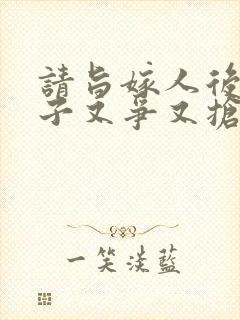 請旨嫁人後
子又爭又搶
一笑淡藍